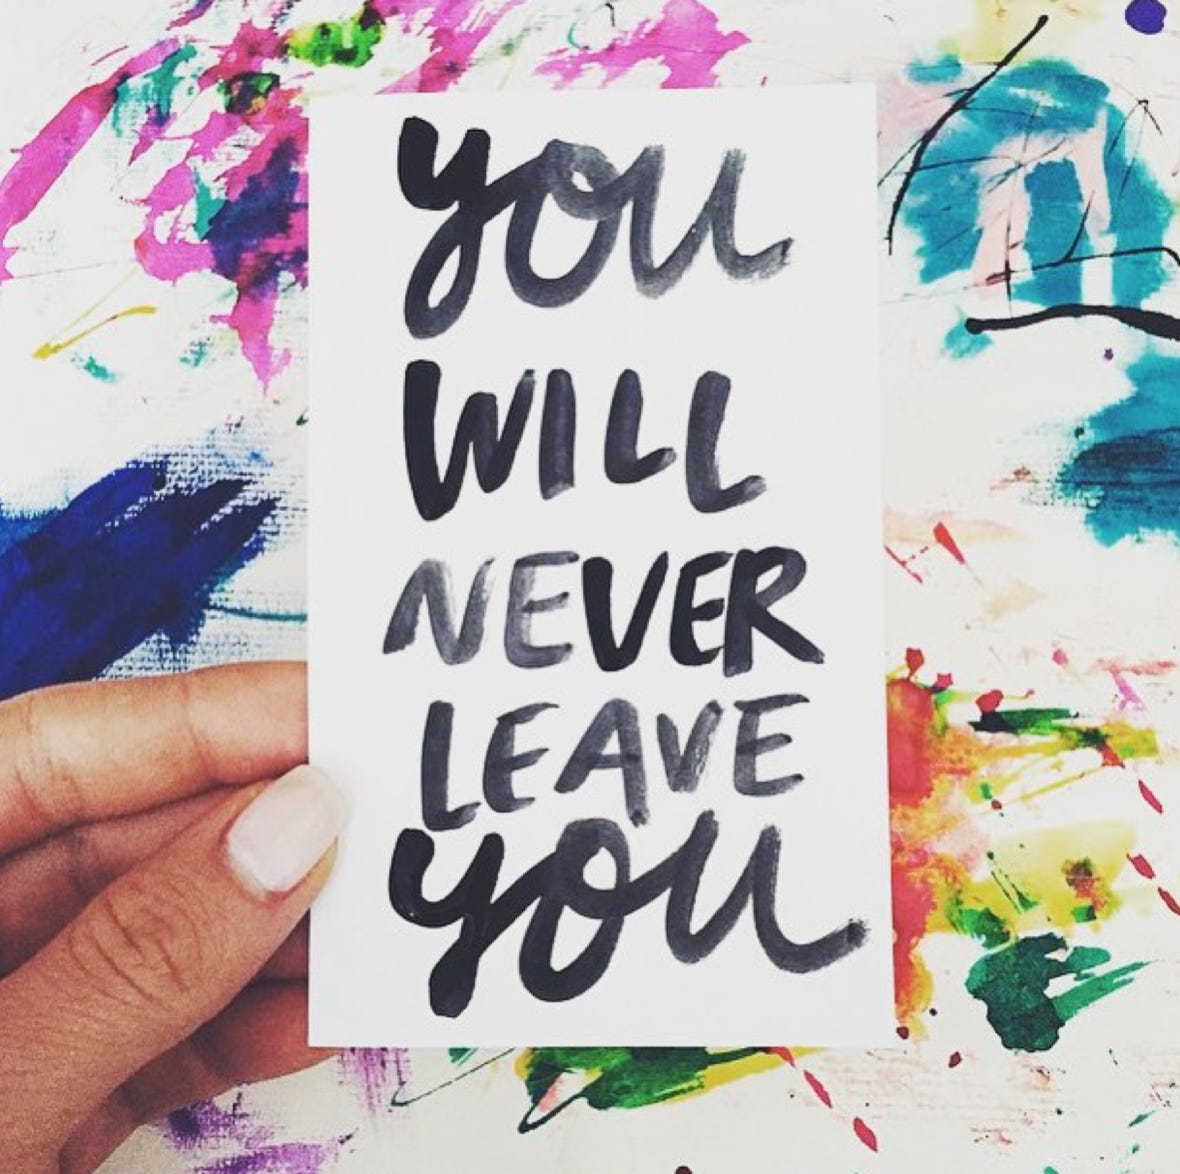 you
WILL
NEVER
LEAVE
you